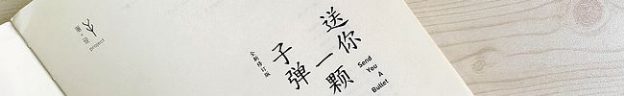 送你一颗
子弹
Send
You
A
Bullet
全新修订版
project